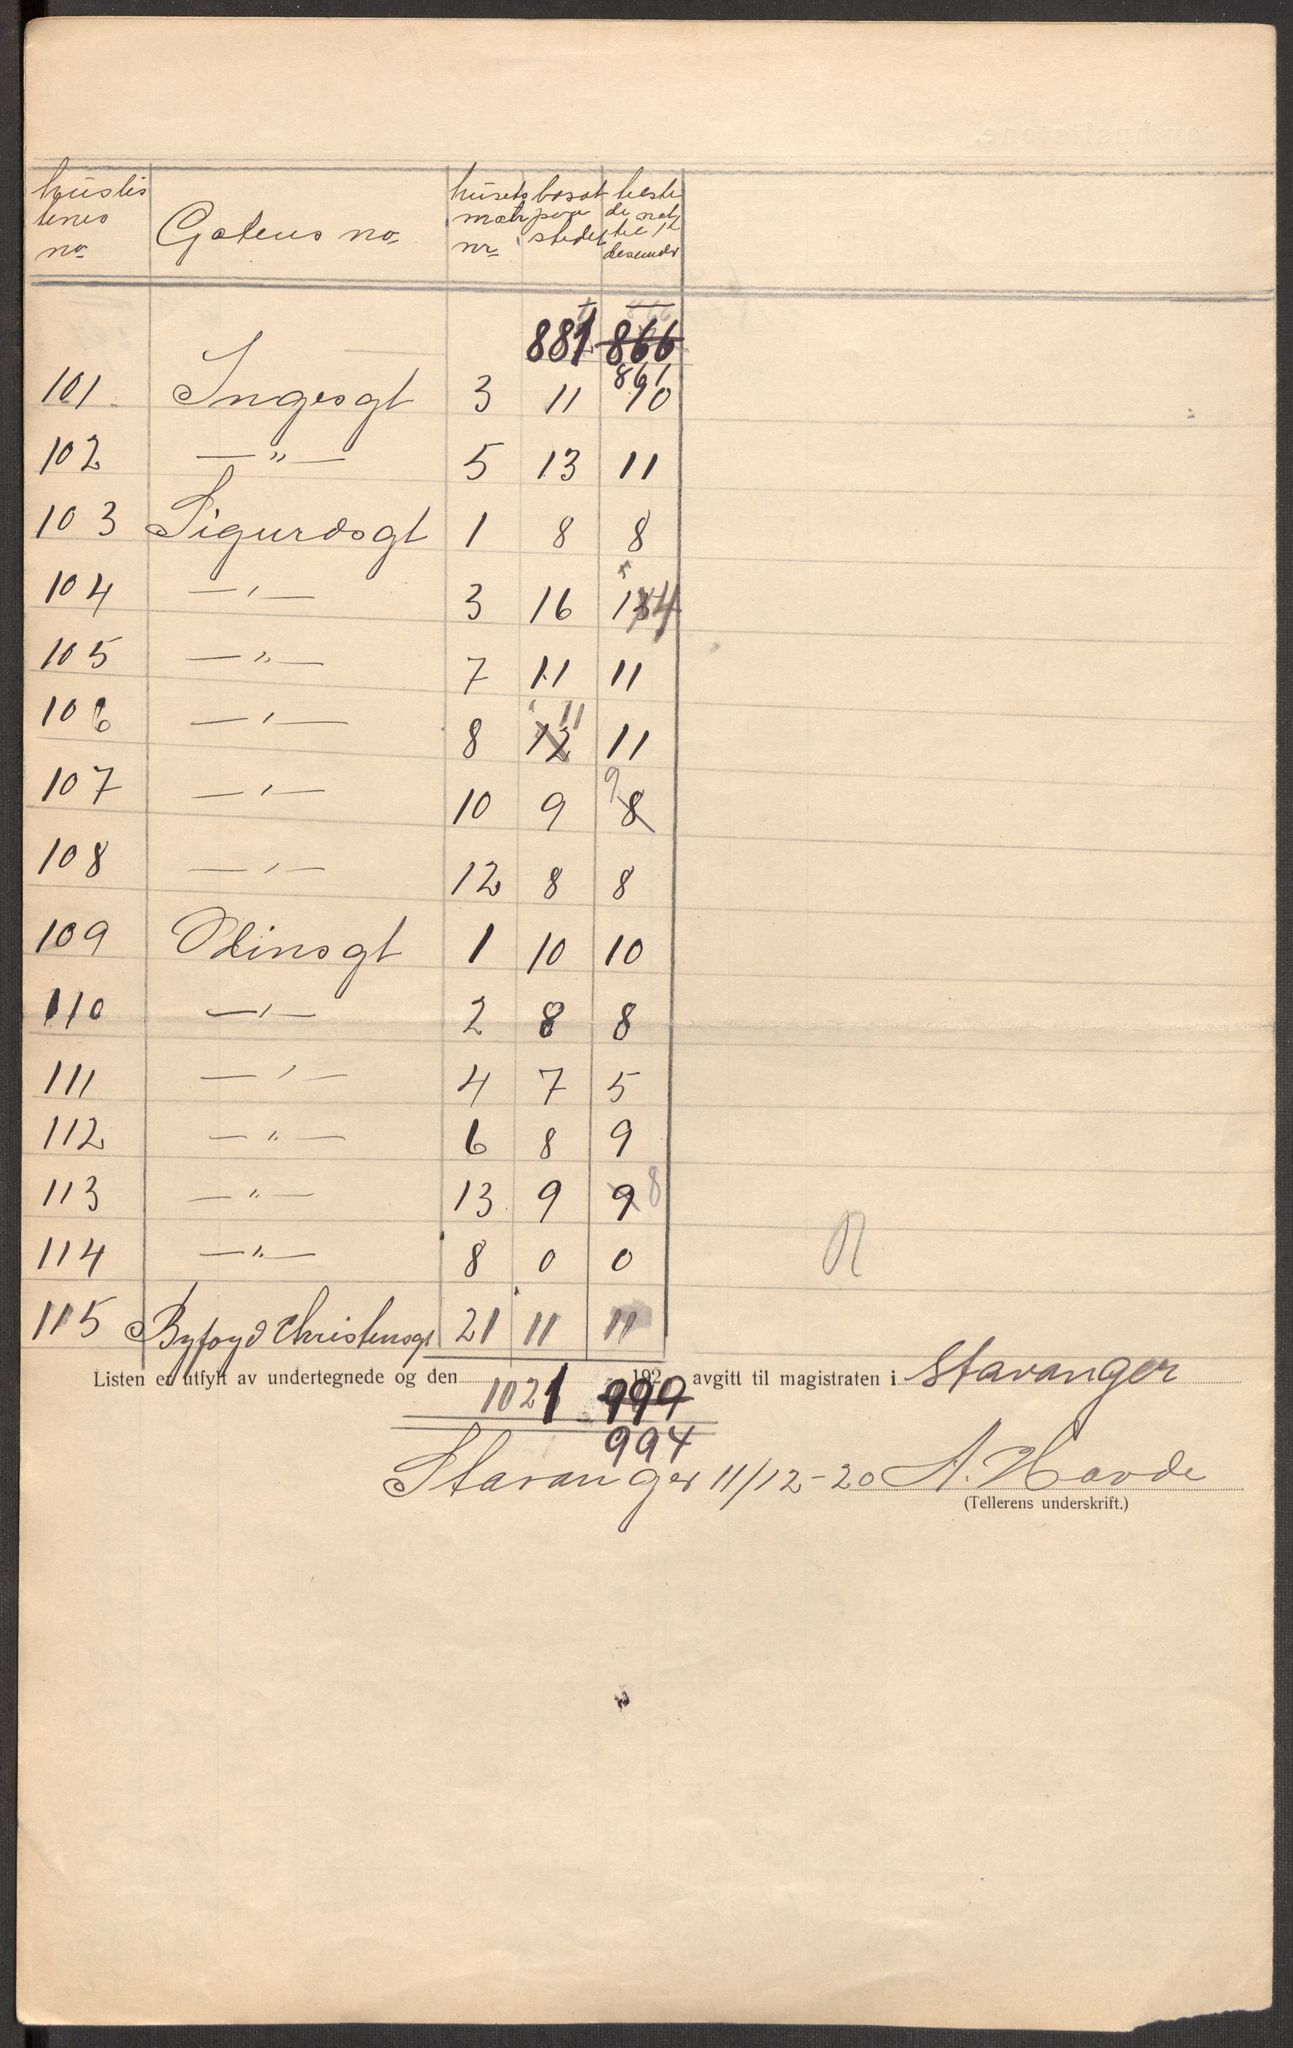 huslis tenes no. Gatens no. husets matr nr. bosat paa stedet tilste de nat til 1/12 desembr
881 866
861
101 Ingesgt 3 11 10
102 — " — 5 13 11
103 Sigurdsgt 1 8 8
104 — " — 3 16 13 14
105 — " — 7 11 11
106 — " — 8 12 11 11
107 — " — 10 9 8 9
108 — " — 12 8 8
109 Odinsgt 1 10 10
110 — " — 2 8 8
111 — " — 4 7 5
112 — " — 6 8 9
113 — " — 13 9 9 8
114 — " — 8 0 0
115 Byfogd Christensgt 21 11 11
Listen er utfylt av undertegnede og den 192 avgitt til magistraten i Stavanger
1021 999
994
Stavanger 11/12-20 A. Havde
(Tellerens underskrift.)